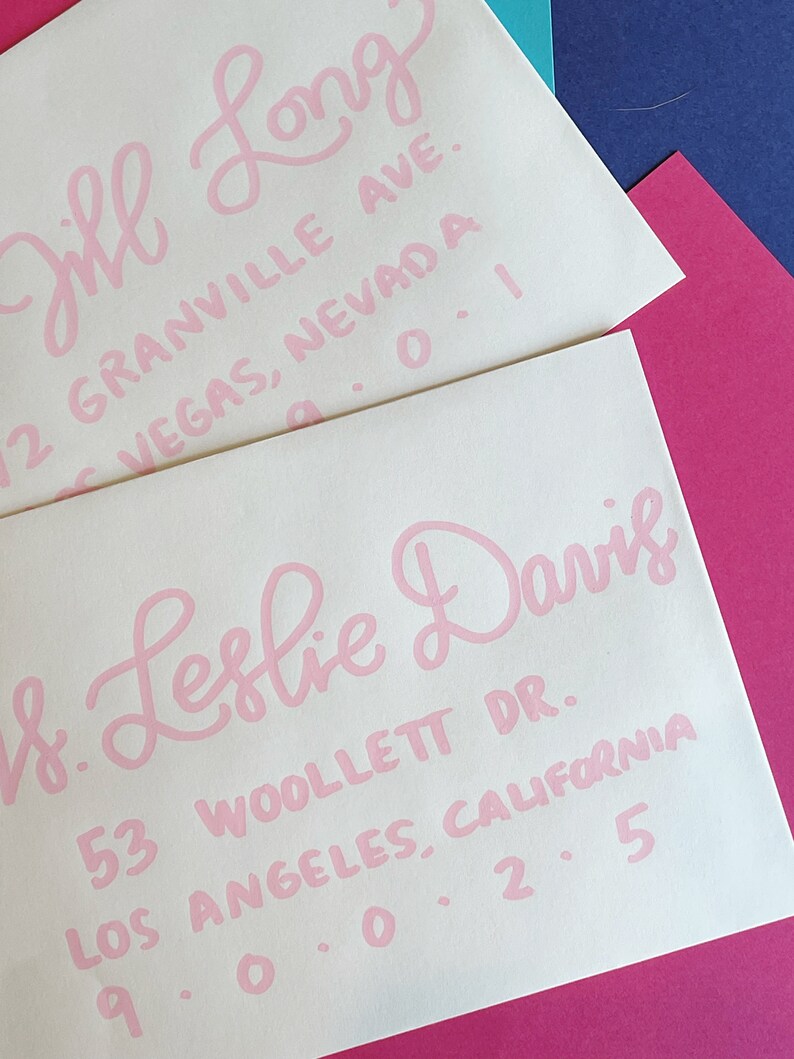 Jill Long
12 GRANVILLE AVE.
VEGAS, NEVADA
9 · 0 · 1
Leslie Davis
53 WOOLLETT DR.
LOS ANGELES, CALIFORNIA
9 · 0 · 0 · 2 · 5